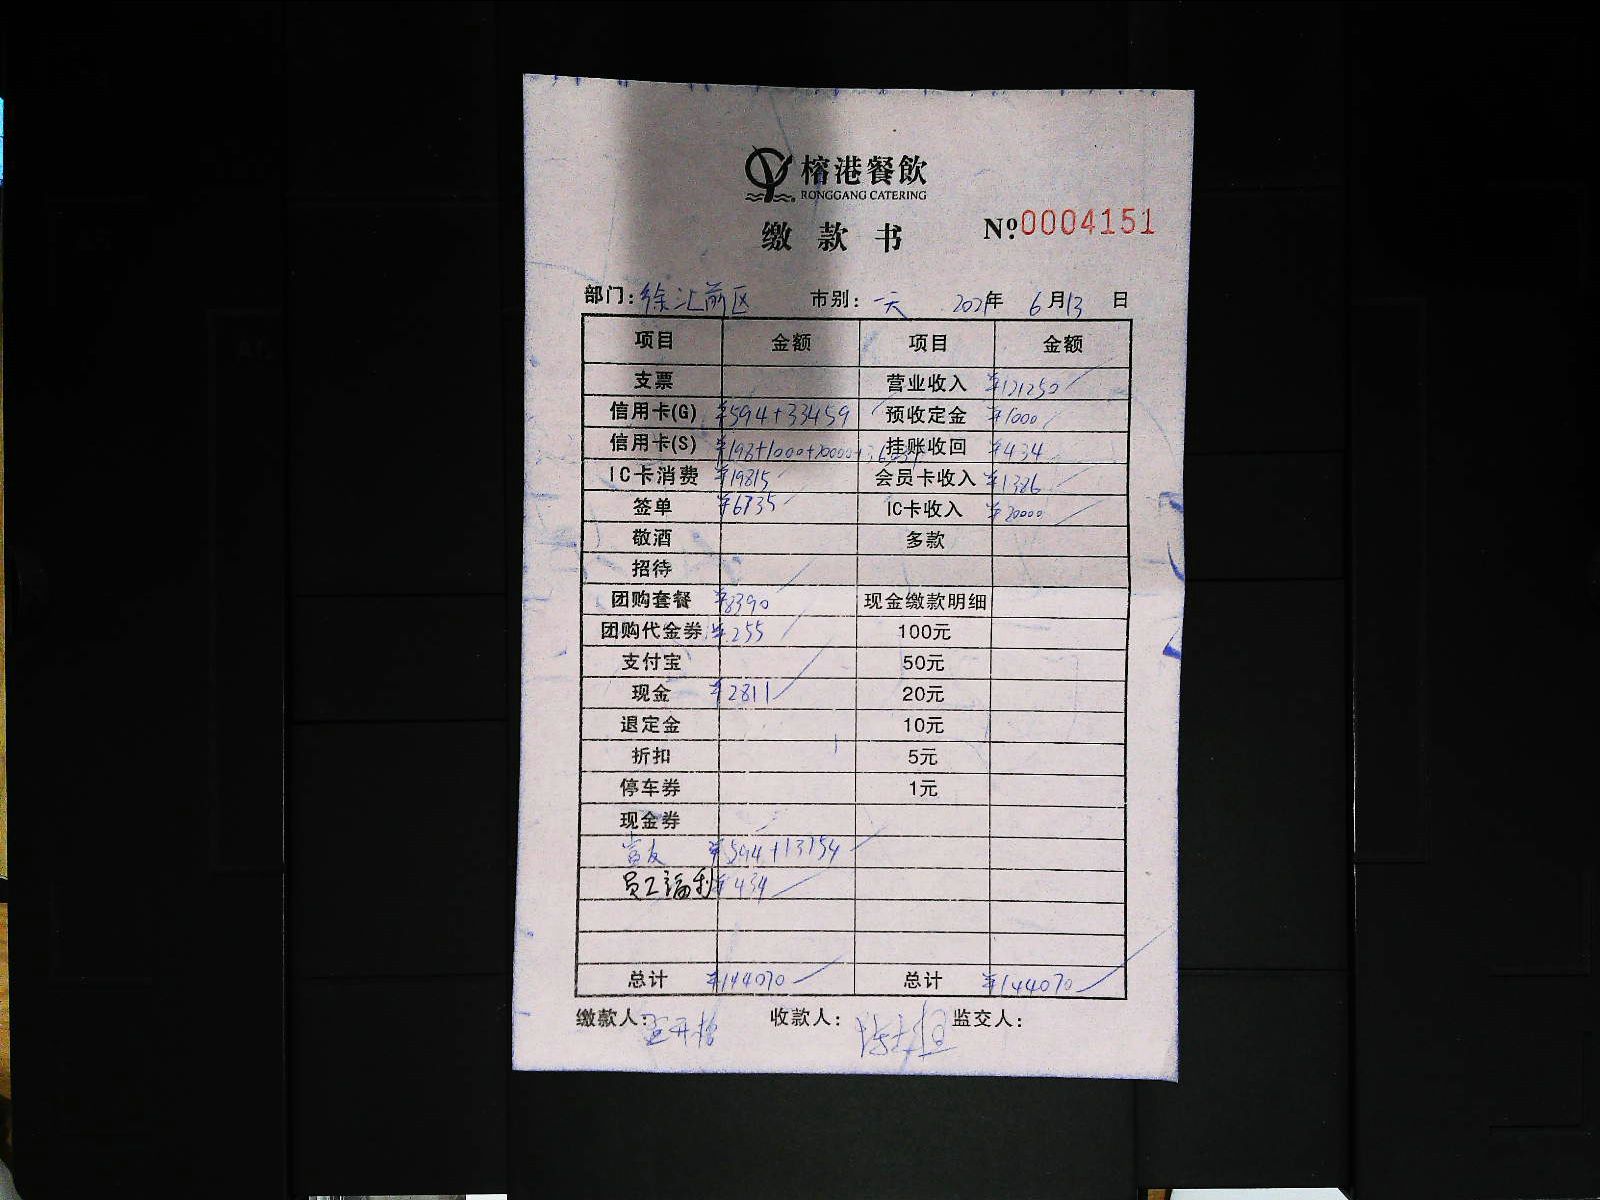 榕港餐飲
RONGGANG CATERING
缴款书 Nº 0004151
部门: 徐汇前区 市别: 一天 2021年 6月13日
项目 金额 项目 金额
支票 营业收入 ¥121250
信用卡(G) ¥594+33459 预收定金 ¥1000
信用卡(S) ¥198+1000+20000+ 挂账收回 ¥434
IC卡消费 ¥19815 会员卡收入 ¥1386
签单 ¥6735 IC卡收入 ¥20000
敬酒 多款
招待
团购套餐 ¥8390 现金缴款明细
团购代金券 ¥255 100元
支付宝 50元
现金 ¥2811 20元
退定金 10元
折扣 5元
停车券 1元
现金券
¥594+13754
员工福利 ¥434
总计 ¥144070 总计 ¥144070
缴款人: 收款人: 监交人: